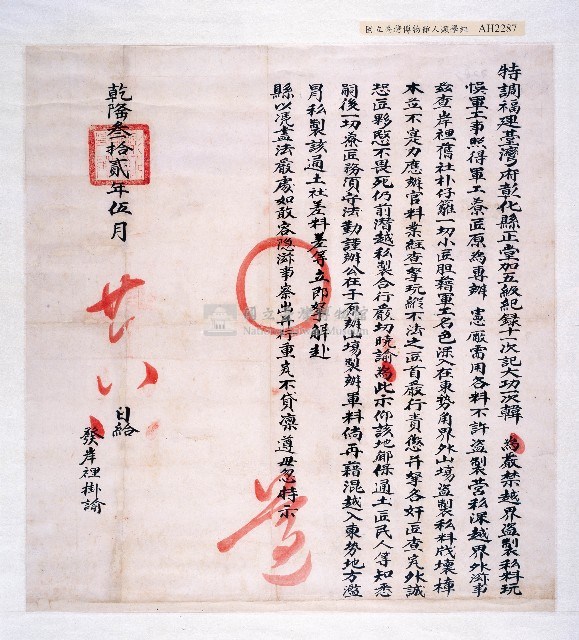 國立臺灣博物館人類學組 AH2287
特調福建臺灣府彰化縣正堂加五級紀錄十一次記大功一次韓 為嚴禁越界盜製私料玩
悞軍工事照得軍工藔匠原為專辦 憲廠需用各料不許盜製營私深越界外滋事
茲查岸裡舊社朴仔籬一切小匠胆藉軍工名色深入在東勢角界外山場盜製私料戕壞樟
木並不寔力應辦官料業經查拏玩縱不法之匠首嚴行責懲并拏各奸匠查究外誠
恐匠夥愍不畏死仍前潛越私製合行嚴切曉諭為此示仰該地鄉保通土匠民人等知悉
嗣後一切藔匠務須守法勤謹辦公在于原辦山場製辦軍料倘再藉混越入東勢地方濫
冐私製該通土社差料差等立即拏解赴
縣以凴盡法嚴處如敢容隱滋事察出并行重究不貸凛遵毋忽特示
遵
乾隆叁拾貳年伍月
廿八
日給
發岸裡掛諭
國立臺灣博物館